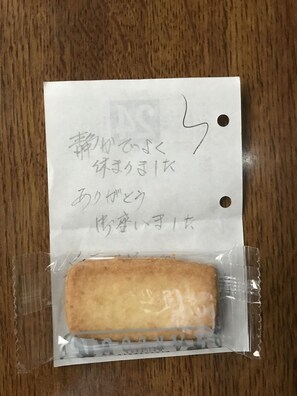 静かでよく
休まりました
ありがとう
御座いました